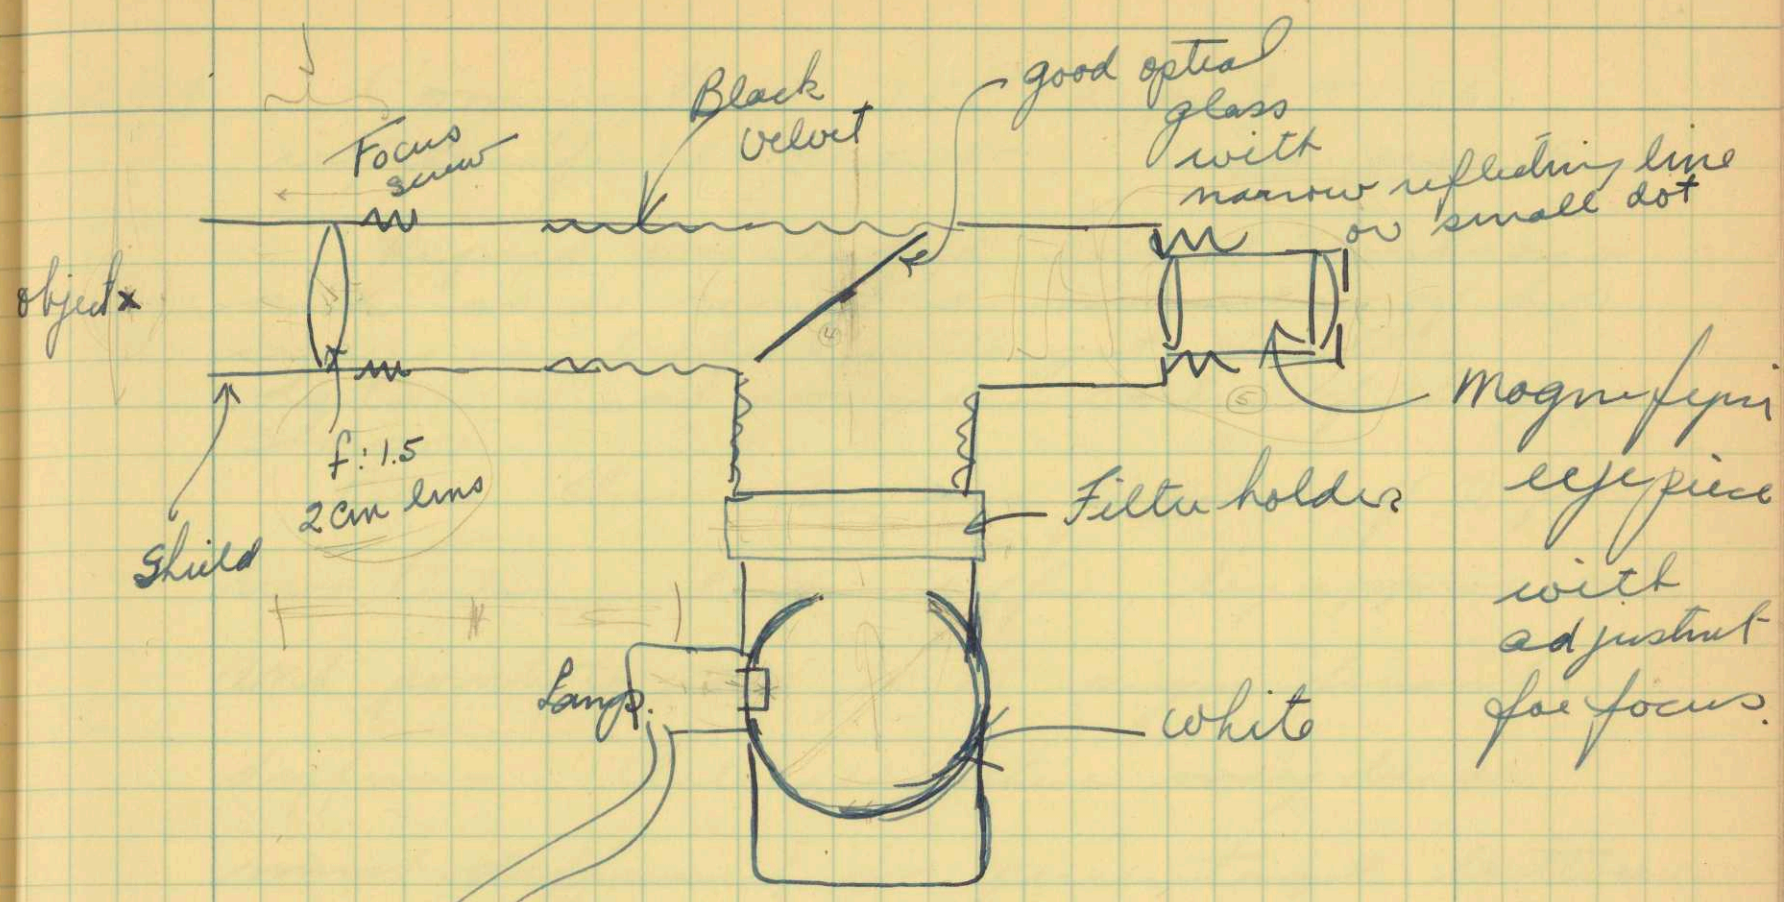 Focus
screw
Black
velvet
good optical
glass
with
narrow reflecting line
or small dot
object x
f: 1.5
2 cm lens
Shield
Magnifying
eyepiece
with
adjustment
for focus.
Filter holder
Lamp.
White